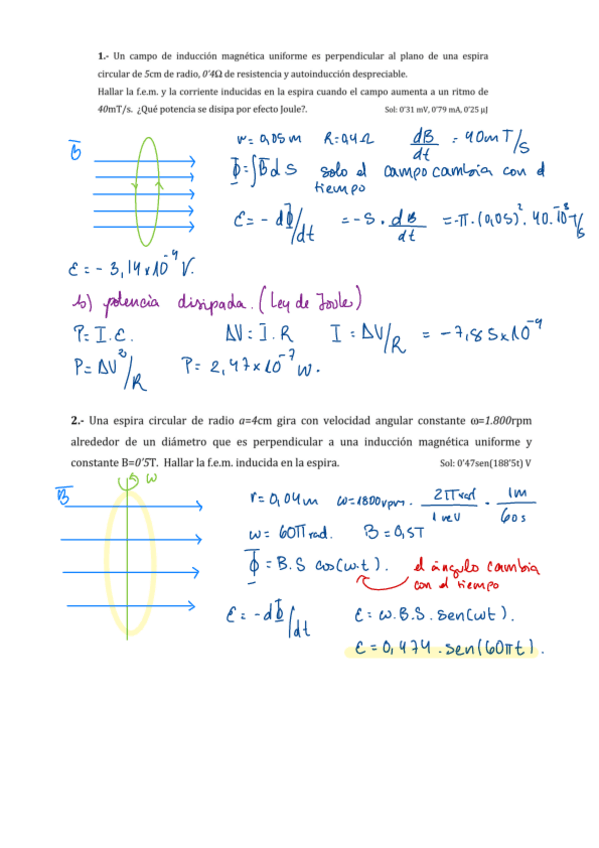 1.- Un campo de inducción magnética uniforme es perpendicular al plano de una espira
circular de 5cm de radio, 0'4Ω de resistencia y autoinducción despreciable.
Hallar la f.e.m. y la corriente inducidas en la espira cuando el campo aumenta a un ritmo de
40mT/s. ¿Qué potencia se disipa por efecto Joule?. Sol: 0'31 mV, 0'79 mA, 0'25 μJ
B
r = 0,05m R=0,4Ω dB/dt = 40mT/s
Φ=∫B d s solo el campo cambia con el
tiempo
ε = - dΦ/dt = -S · dB/dt = -π·(0,05)²·40·10⁻³ T/s
ε = - 3,14×10⁻⁴ V.
b) potencia disipada. (Ley de Joule)
P= I.ε. ΔV = I.R I = ΔV/R = -7,85×10⁻⁴
P= ΔV²/R P= 2,47×10⁻⁷ W.
2.- Una espira circular de radio a=4cm gira con velocidad angular constante ω=1.800rpm
alrededor de un diámetro que es perpendicular a una inducción magnética uniforme y
constante B=0'5T. Hallar la f.e.m. inducida en la espira. Sol: 0'47sen(188'5t) V
ω
B
r = 0,04m ω=1800rpm. 2πrad/1rev · 1m/60s
ω= 60π rad. B = 0,5T
Φ = B.S cos(ω.t). el ángulo cambia
con el tiempo
ε = -dΦ/dt ε = ω.B.S.sen(ωt).
ε = 0,474.sen(60πt).